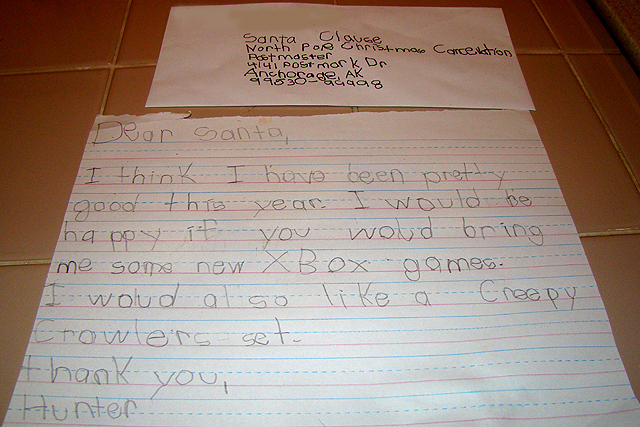 Santa Clause
North Pole Christmas Cancellation
Postmaster
4141 Postmark Dr
Anchorage, AK
99530-99998
Dear Santa,
I think I have been pretty
good this year. I would be
happy if you wolud bring
me some new XBox games.
I wolud also like a Creepy
Crawlers set.
thank you,
Hunter